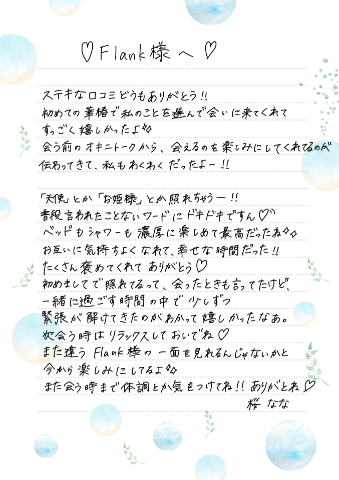 ♡Flank様へ♡
ステキな口コミどうもありがとう!!
初めての華椿で私のことを選んで会いに来てくれて
すっごく嬉しかったよ♪♪
会う前のオキニトークから、会えるのを楽しみにしてくれてるのが
伝わってきて、私もわくわくだったよー!!
「天使」とか「お姫様」とか照れちゃうー!!
普段言われたことないワードにドキドキですん♡
ベッドもシャワーも濃厚に楽しめて最高だったね♪♪
お互いに気持ちよくなれて、幸せな時間だった!!
たくさん褒めてくれてありがとう♡
初めましてで照れてるって、会ったときも言ってたけど、
一緒に過ごす時間の中で少しずつ
緊張が解けてきたのがわかって嬉しかったなぁ。
次会う時はリラックスしておいでね♡
また違うFlank様の一面を見れるんじゃないかと
今から楽しみにしてるよ♪♪
また会う時まで体調とか気をつけてね!!ありがとね♡
桜 なな